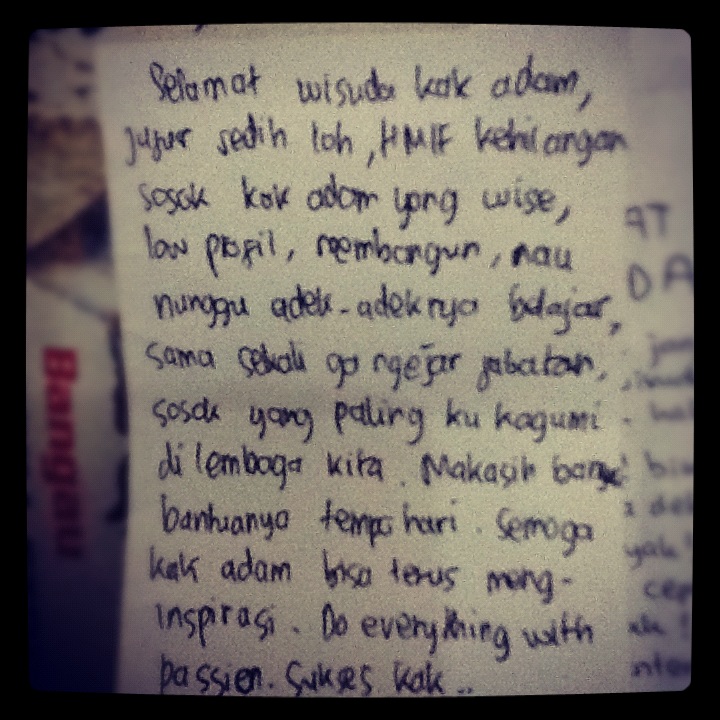 Selamat wisuda kak adam,
jujur sedih loh, HMIF kehilangan
sosok kak adam yang wise,
low profil, membangun, mau
nunggu adek-adeknya belajar,
sama sekali ga ngejar jabatan,
sosok yang paling ku kagumi
di lembaga kita. Makasih banyak
bantuanya tempo hari. Semoga
kak adam bisa terus meng-
inspirasi. Do everything with
passion. Sukses kak..
Bangau
AT
DA